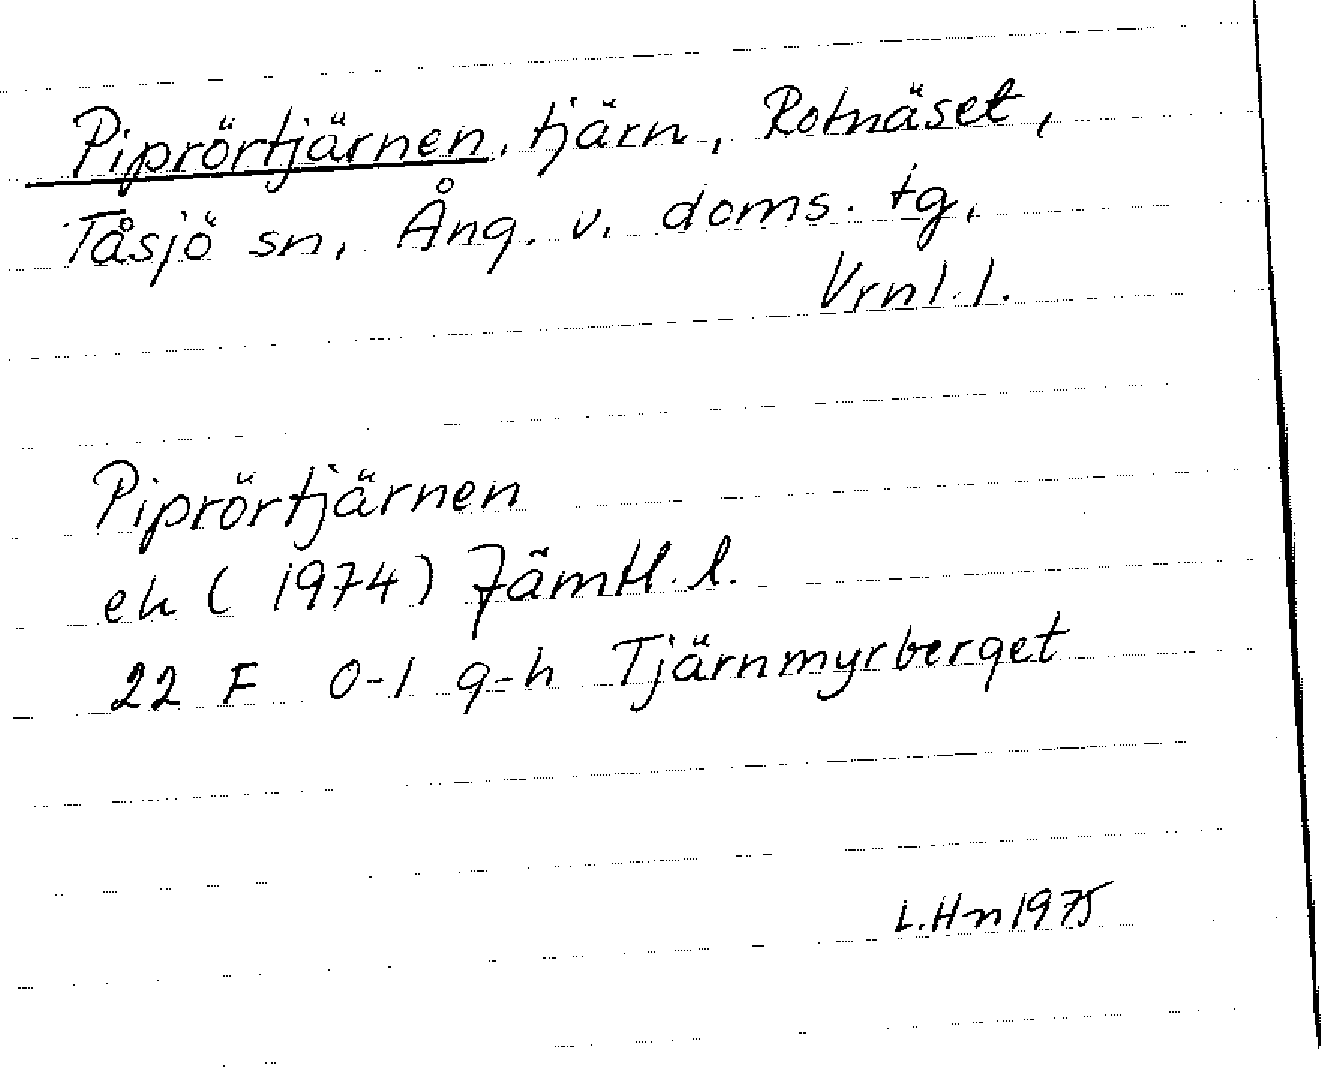 Piprörtjärnen, tjärn, Rotnäset,
Tåsjö sn, Ång. v. doms. tg.
Vrnl. l.
Piprörtjärnen
ek (1974) Jämtl. l.
22 F 0-1 g-h Tjärnmyrberget
L. Hn 1975